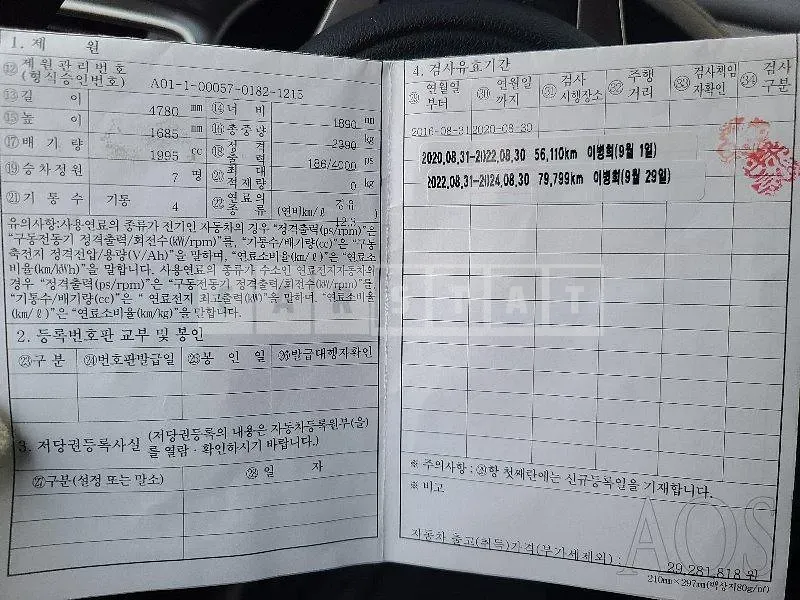 1. 제 원
⑫ 제원관리번호
(형식승인번호) A01-1-00057-0182-1215
⑬길 이 4780 mm ⑭너 비 1890 mm
⑮높 이 1685 mm ⑯총중량 kg
⑰배 기 량 1995 cc ⑱정격출력 186/4000 ps
⑲승차정원 7 명 ⑳최대적재량 0 kg
㉑기 통 수 기통 4 ㉒연료의종류 (연비)km/ℓ
유의사항:사용연료의 종류가 전기인 자동차의 경우 "정격출력(ps/rpm)"은
"구동전동기 정격출력/회전수(kW/rpm)"를, "기통수/배기량(cc)"은 "구동
축전지 정격전압/용량(V/Ah)"을 말하며, "연료소비율(km/ℓ)"은 "연료소
비율(km/kWh)"을 말합니다. 사용연료의 종류가 수소인 연료전지자동차의
경우 "정격출력(ps/rpm)"은 "구동전동기 정격출력/회전수(kW/rpm)"를,
"기통수/배기량(cc)"은 " 연료전지 최고출력(kW)"을 말하며, "연료소비율
(km/ℓ)"은 "연료소비율(km/kg)"을 말합니다.
2. 등록번호판 교부 및 봉인
㉓구 분 ㉔번호판발급일 ㉕봉 인 일 ㉖발급대행자확인
3. 저당권등록사실 (저당권등록의 내용은 자동차등록원부(을)
를 열람ㆍ확인하시기 바랍니다.)
㉗구분(설정 또는 말소) ㉘일 자
4. 검사유효기간
㉙연월일부터 ㉚연월일까지 ㉛검사시행장소 ㉜주행거리 ㉝검사책임자확인 ㉞검사구분
2016-08-31 2020-08-30
2020,08,31-2022,08,30 56,110km 이병희(9월 1일)
2022,08,31-2024,08,30 79,799km 이병희(9월 29일)
※ 주의사항 : ㉙항 첫째란에는 신규등록일을 기재합니다.
※ 비고
자동차 출고(취득)가격(부가세제외) :
29,281,818 원
210㎜×297㎜(백상지80g/㎡)
AOS